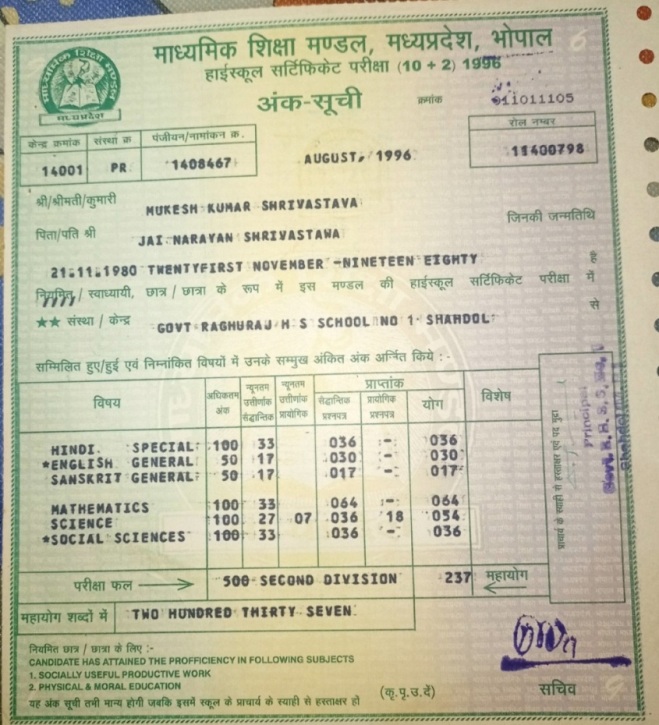 माध्यमिक शिक्षा मण्डल, मध्यप्रदेश, भोपाल
हाईस्कूल सर्टिफिकेट परीक्षा (10 + 2) 1996
अंक-सूची
क्रमांक 011011105
केन्द्र क्रमांक संस्था क्र पंजीयन/नामांकन क्र. रोल नम्बर
14001 PR 1408467 AUGUST, 1996 11400798
श्री/श्रीमती/कुमारी MUKESH KUMAR SHRIVASTAVA
पिता/पति श्री JAI NARAYAN SHRIVASTAWA जिनकी जन्मतिथि
21.11.1980 TWENTYFIRST NOVEMBER -NINETEEN EIGHTY है
नियमित / स्वाध्यायी, छात्र / छात्रा के रूप में इस मण्डल की हाईस्कूल सर्टिफिकेट परीक्षा में
★★ संस्था / केन्द्र GOVT RAGHURAJ H S SCHOOL NO 1 SHAHDOL से
सम्मिलित हुए/हुई एवं निम्नांकित विषयों में उनके सम्मुख अंकित अंक अर्जित किये :-
विषय अधिकतम अंक न्यूनतम उत्तीर्णांक सैद्धान्तिक न्यूनतम उत्तीर्णांक प्रायोगिक प्राप्तांक विशेष
सैद्धान्तिक प्रश्नपत्र प्रायोगिक प्रश्नपत्र योग
HINDI SPECIAL 100 33 036 - 036
*ENGLISH GENERAL 50 17 030 - 030
SANSKRIT GENERAL 50 17 017 - 017
MATHEMATICS 100 33 064 - 064
SCIENCE 100 27 07 036 18 054
*SOCIAL SCIENCES 100 33 036 - 036
परीक्षा फल 500 SECOND DIVISION 237 महायोग
महायोग शब्दों में TWO HUNDRED THIRTY SEVEN
नियमित छात्र / छात्रा के लिए :-
CANDIDATE HAS ATTAINED THE PROFFICIENCY IN FOLLOWING SUBJECTS
1. SOCIALLY USEFUL PRODUCTIVE WORK
2. PHYSICAL & MORAL EDUCATION
यह अंक सूची तभी मान्य होगी जबकि इसमें स्कूल के प्राचार्य के स्याही से हस्ताक्षर हो (कृ.पृ.उ.दें) सचिव
प्राचार्य के स्याही से हस्ताक्षर एवं पद मुद्रा
Principal